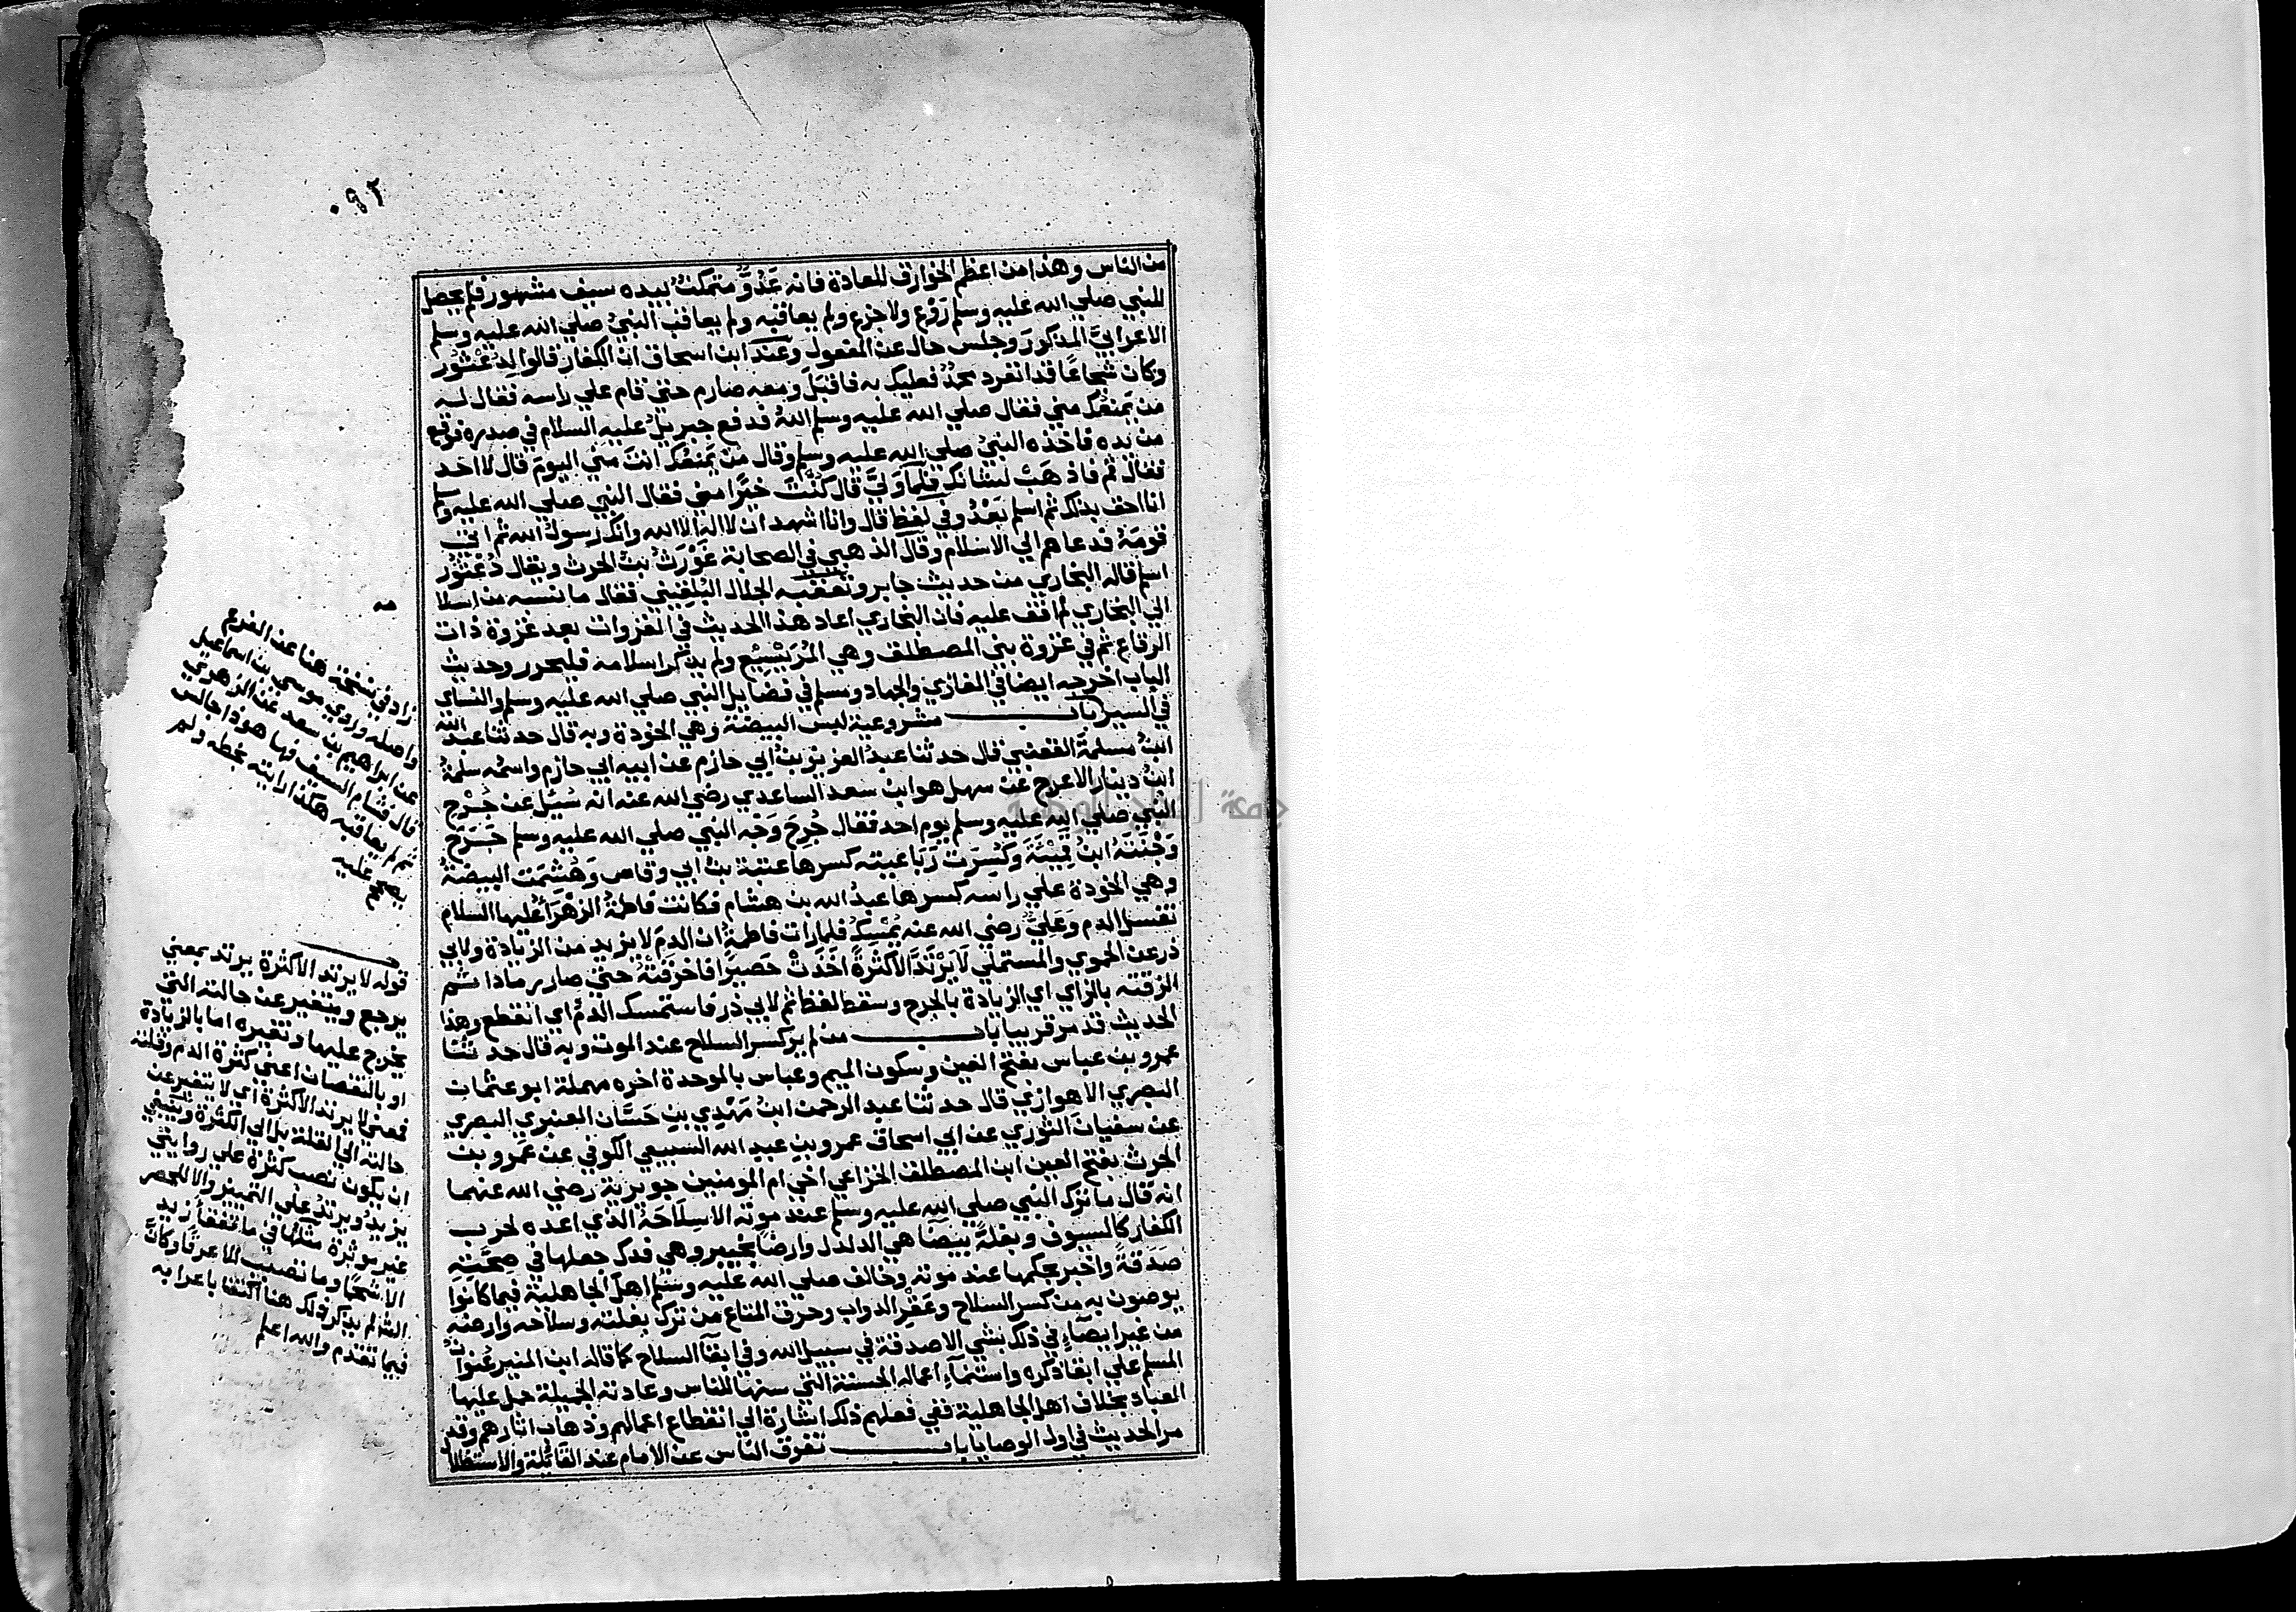 ٠٩٢
من الناس وهذا من اعظم الخوارق للعادة فانه عدوٌّ متمكنٌ بيده سيف مشهور فلم يحصل
للنبي صلي الله عليه وسلم رَوْع ولا جزع ولم يعاقبه ولم يعاقب النبيُّ صلي الله عليه وسلم
الاعرابيَّ المذكورَ وجلس حال عن المفعول وعند ابن اسحاق ان الكفار قالوا لِدُعْثُور
وكان شجاعًا قد انفرد محمدٌ فعليك به فاقبل ومعه صارم حتي قام علي راسه فقال له
من يَمنعُك مني فقال صلي الله عليه وسلم اللهُ فدفع جبريلُ عليه السلام في صدره فوقع
من يده فاخذه النبيُّ صلي الله عليه وسلم وقال من يَمنعُك انتَ مني اليومَ قال لا احد
فقال قم فاذهَبْ لشانك فلما وَلَّي قال كُنْتَ خيرًا مني فقال النبي صلي الله عليه وسلم
انا احق بذلك ثم اسلم بَعْدُ وفي لفظ قال وانا اشهد ان لا اله الا الله وانك رسولُ الله ثم اتي
قومَهُ فدعاهم الي الاسلام وقال الذهبي في الصحابة غَوْرَثُ بنُ الحرث ويقال دُعْثُور
اسلم قاله البخاري من حديث جابر وتعقبه الجلال البُلقِيني فقال ما نسبه من اسلا
الي البخاري لم اقف عليه فان البخاري اعاد هذا الحديث في الغزوات بعد غزوة ذات
الرقاع ثم في غزوة بني المصطلق وهي المُرَيْسِيْع ولم يذكر اسلامه فليحرر وحديث
الباب اخرجه ايضا في المغازي والجهاد ومسلم في فضايل النبي صلي الله عليه وسلم والنساي
في السير باب مشروعية لبس البيضة وهي الخودة وبه قال حدثنا عبد الله
ابنُ مسلمةَ القعنبي قال حدثنا عبدُ العزيز بنُ ابي حازم عن ابيه ابي حازم واسمُه سلمةُ
ابنُ دينار الاعرج عن سهل هو ابن سعد الساعدي رضي الله عنه انه سُئِل عن جُرْح
النبي صلي الله عليه وسلم يوم احد فقال جُرِحَ وَجْه النبي صلي الله عليه وسلم جَرَحَ
وَجْنَتَهُ ابنُ قَمِيْئَةَ وكُسِرَت رَبَاعيته كسرها عتبة بنُ ابي وقاص وَهُشِمَت البيضةُ
وهي الخودة علي راسه كسرها عبدُ الله بن هشام فكانت فاطمةُ الزهراءُ عليها السلام
تغسل الدم وعَلِيٌّ رضي الله عنه يُمْسِكُ فلما رات فاطمةُ ان الدم لا يزيد من الزيادة ولابي
ذر عن الحموي والمستملي لا يَرْتَدُّ الا كثرةً اخَذَتْ حَصيرًا فاحرَقَتْهُ حتي صار رمادا ثم
الزقته بالزاي اي الزيادة بالجرح وسقط لفظ ثم لابي ذر فاستمسك الدمُ اي انقطع وهذا
الحديث قد مر قريبا باب من لم ير كسر السلاح عند الموت وبه قال حدثنا
عمرو بن عباس بفتح العين وسكون الميم وعباس بالموحدة اخره مهملة ابو عثمان
البصري الاهوازي قال حدثنا عبد الرحمن ابنُ مَهْدِي بنِ حَسَّان العنبري البصري
عن سفيان الثوري عن ابي اسحاق عمرو بنِ عبدِ الله السبيعي الكوفي عن عَمرو بن
الحرث بفتح العين ابن المصطلق الخزاعي اخي ام المومنين جويرية رضي الله عنهما
انه قال ما ترك النبي صلي الله عليه وسلم عند موته الا سِلَاحَهُ الذي اعده لحرب
الكفار كالسيوف وبغلةً بيضاَ هي الدلدل وارضًا بخيبر وهي فدك جعلها في صِحَّتِهِ
صَدَقةً واخبر بحكمها عند موته وخالف صلي الله عليه وسلم اهلَ الجاهلية فيما كانوا
يوصون به من كسر السلاح وعَقْرِ الدواب وحرق المتاع من ترك بغلته وسلاحه وارضه
من غير ايصآءٍ في ذلك بشي الا صدقة في سبيل الله وفي ابقآ السلاح كما قاله ابن المنير عُنوانُ
المسلم علي ابقا ذكره واستنمآءِ اعماله الحسنة التي سنها للناس وعادته الجميلة حمل عليها
العباد بخلاف اهل الجاهلية ففي فعلهم ذلك اشارة الي انقطاع اعمالهم وذهاب اثارهم وقد
مر الحديث في اول الوصايا باب تفرق الناس عن الامام عند القآئلة والاستظلا
زاد في نسخة هنا عن الفرع
واصله وروي موسي بن اسماعيل
عن ابراهيم بن سعد عن الزهري
قال فشام السيف فها هو ذا جالس
ثم لم يعاقبه هكذا رايته بخطه ولم
يصح عليه
قوله لا يرتد الا كثرة يرتد بمعني
يرجع ويتغير عن حالته التي
يخرج عليها وتغيره اما بالزيادة
او بالنقصان اعني كثرة الدم وقلته
فمعني لا يرتد الا كثرة اي لا يتغير عن
حالته الي القلة بل الي الكثرة وينبغي
ان يكون نصب كثرة علي روايتي
يزيد ويرتد علي التمييز والا للحصر
غير موثرة مثلها في ما تفقأ زيد
الا شحمًا وما تصبب الا عرقًا وكان
الش لم يذكر ذلك هنا اكتفا باعرابه
فيما تقدم والله اعلم